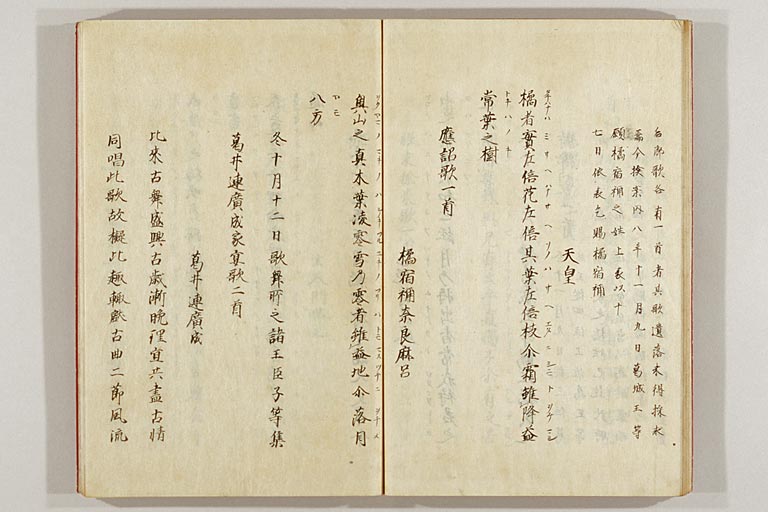 右御歌各有一首者其歌遺落未得探求
焉今檢案内八年十一月九日葛城王等
願橘宿祢之姓上表以十
七日依表乞賜橘宿祢
天皇
橘者實左倍花左倍其葉左倍枝尒霜雖降益
常葉之樹
應詔歌一首
橘宿祢奈良麻呂
奥山之真木葉凌零雪乃零者雖益地尒落目
八方
冬十月十二日歌舞所之諸王臣子等集
葛井連廣成家宴歌二首
葛井連廣成
比來古舞盛興古歳漸晩理宜共盡古情
同唱此歌故擬此趣輙獻古曲二節風流